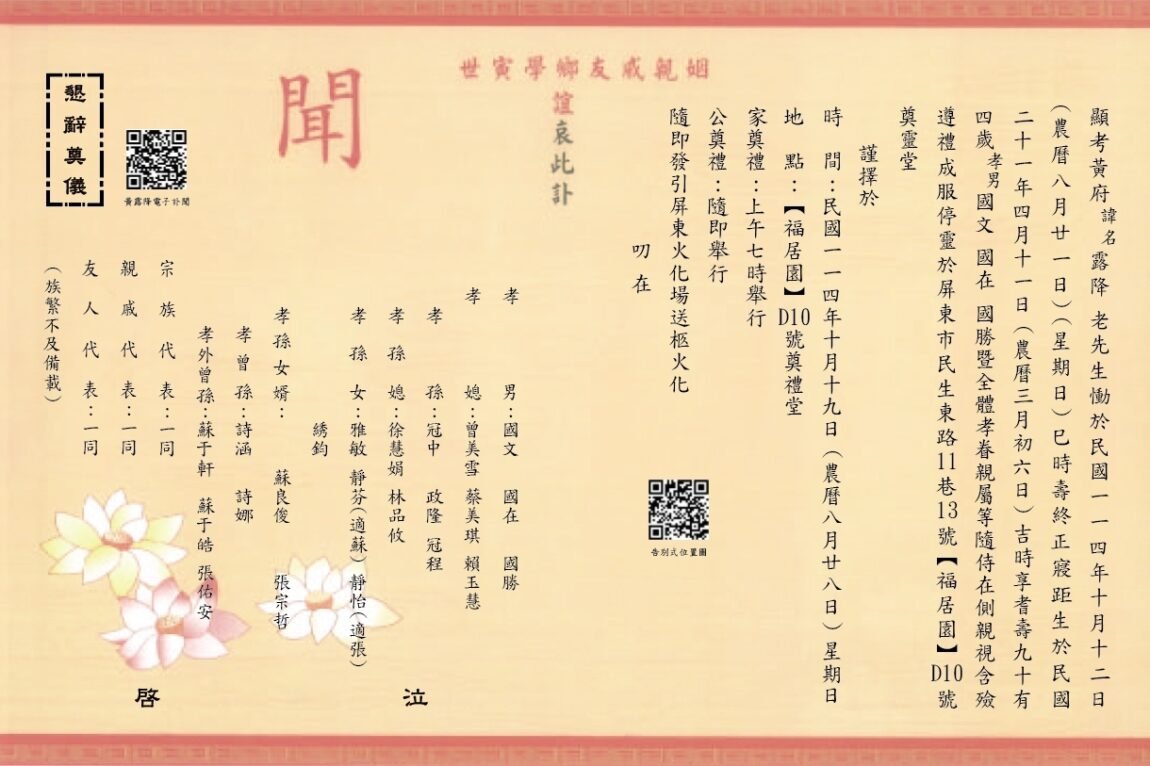 顯考黃府 諱名 露降 老先生慟於民國一一四年十月十二日
(農曆八月廿一日)(星期日)巳時壽終正寢距生於民國
二十一年四月十一日(農曆三月初六日)吉時享耆壽九十有
四歲 孝男 國文 國在 國勝暨全體孝眷親屬等隨侍在側親視含殮
遵禮成服停靈於屏東市民生東路11巷13號【福居園】D10號
奠靈堂
謹擇於
時 間:民國一一四年十月十九日(農曆八月廿八日)星期日
地 點:【福居園】D10號奠禮堂
家奠禮:上午七時舉行
公奠禮:隨即舉行
隨即發引屏東火化場送柩火化
叨在
姻親戚友鄉學寅世
誼
哀此訃
聞
告別式位置圖
孝 男:國文 國在 國勝
孝 媳:曾美雪 蔡美琪 賴玉慧
孝 孫:冠中 政隆 冠程
孝 孫 媳:徐慧娟 林品攸
孝 孫 女:雅敏 靜芬(適蘇)靜怡(適張)
綉鈞
孝孫女婿: 蘇良俊 張宗哲
孝曾孫:詩涵 詩娜
孝外曾孫:蘇于軒 蘇于皓 張佑安
宗族代表:一同
親戚代表:一同
友人代表:一同
(族繁不及備載)
泣
啓
黃露降電子訃聞
懇辭奠儀